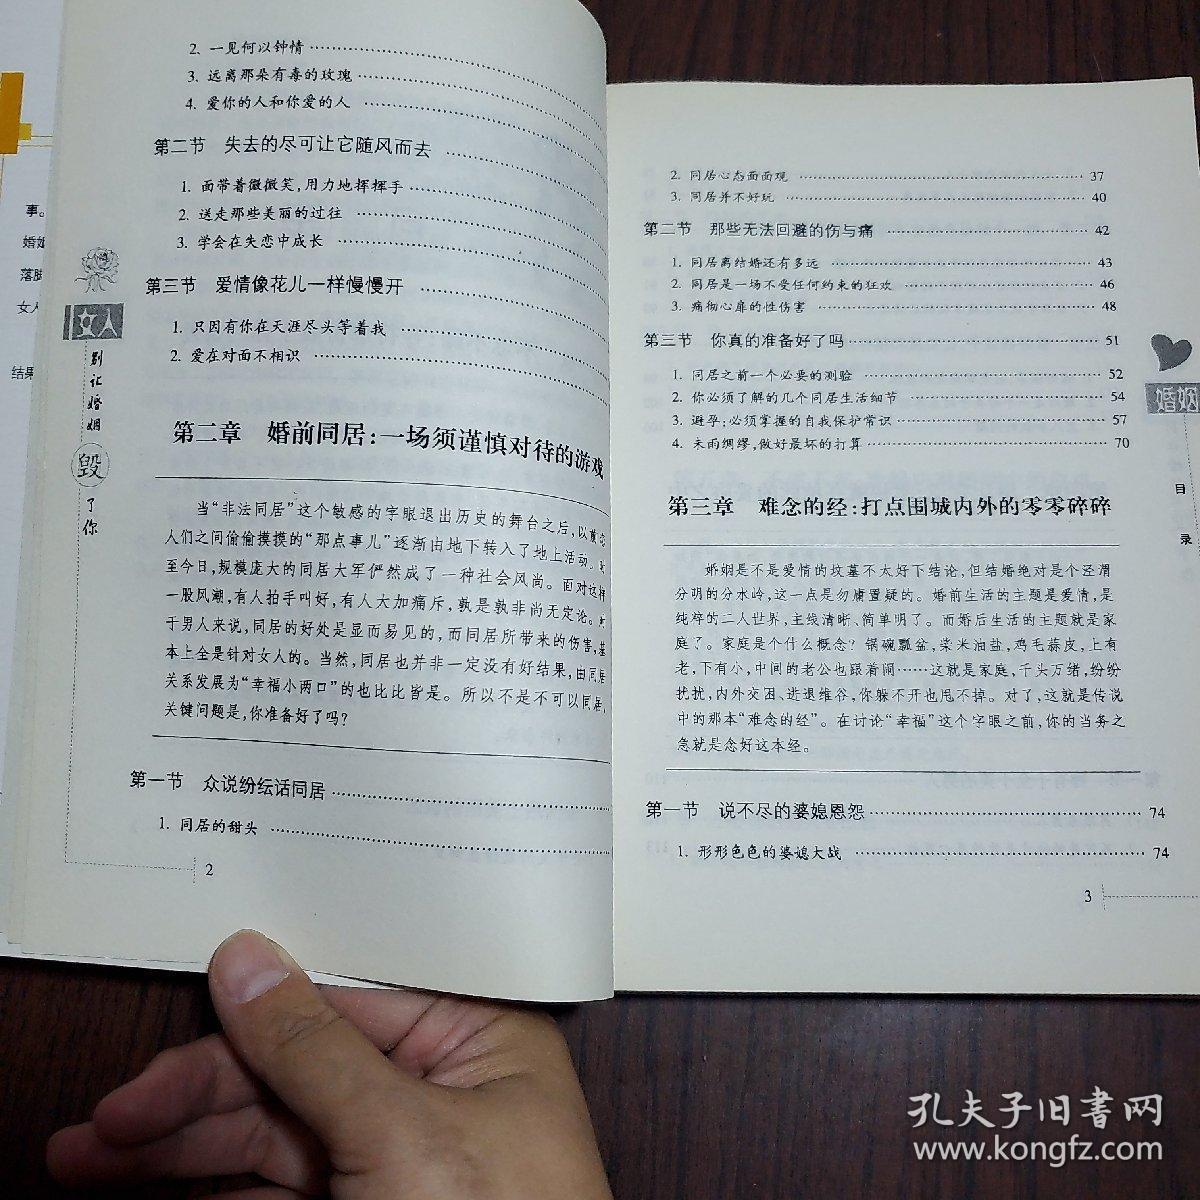 事。
婚姻
落脚
女人
结果
女人
别让婚姻
毁
了你
2. 一见何以钟情
3. 远离那朵有毒的玫瑰
4. 爱你的人和你爱的人
第二节 失去的尽可让它随风而去
1. 面带着微微笑,用力地挥挥手
2. 送走那些美丽的过往
3. 学会在失恋中成长
第三节 爱情像花儿一样慢慢开
1. 只因有你在天涯尽头等着我
2. 爱在对面不相识
第二章 婚前同居:一场须谨慎对待的游戏
当“非法同居”这个敏感的字眼退出历史的舞台之后,以前恋
人们之间偷偷摸摸的“那点事儿”逐渐由地下转入了地上活动。
至今日,规模庞大的同居大军俨然成了一种社会风尚。面对这样
一股风潮,有人拍手叫好,有人大加痛斥,孰是孰非尚无定论。
于男人来说,同居的好处是显而易见的,而同居所带来的伤害,基
本上全是针对女人的。当然,同居也并非一定没有好结果,由同居
关系发展为“幸福小两口”的也比比皆是。所以不是不可以同居,
关键问题是,你准备好了吗?
第一节 众说纷纭话同居
1. 同居的甜头
2
2. 同居心态面面观 37
3. 同居并不好玩 40
第二节 那些无法回避的伤与痛 42
1. 同居离结婚还有多远 43
2. 同居是一场不受任何约束的狂欢 46
3. 痛彻心扉的性伤害 48
第三节 你真的准备好了吗 51
1. 同居之前一个必要的测验 52
2. 你必须了解的几个同居生活细节 54
3. 避孕:必须掌握的自我保护常识 57
4. 未雨绸缪,做好最坏的打算 70
第三章 难念的经:打点围城内外的零零碎碎
婚姻是不是爱情的坟墓不太好下结论,但结婚绝对是个泾渭
分明的分水岭,这一点是勿庸置疑的。婚前生活的主题是爱情,是
纯粹的二人世界,主线清晰、简单明了。而婚后生活的主题就是家
庭了。家庭是个什么概念?锅碗瓢盆,柴米油盐,鸡毛蒜皮,上有
老,下有小,中间的老公也跟着闹……这就是家庭,千头万绪,纷纷
扰扰,内外交困、进退维谷,你躲不开也甩不掉。对了,这就是传说
中的那本“难念的经”。在讨论“幸福”这个字眼之前,你的当务之
急就是念好这本经。
第一节 说不尽的婆媳恩怨 74
1. 形形色色的婆媳大战 74
3
婚姻
目
录
孔夫子旧书网
www.kongfz.com